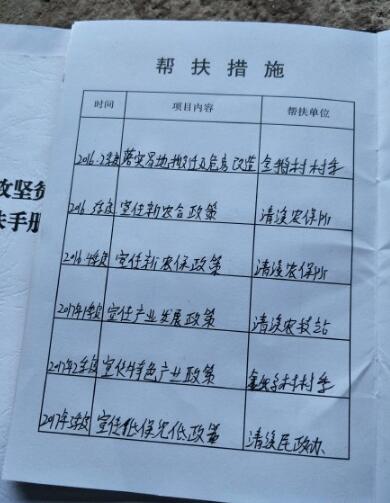 攻坚贫
扶手册
帮扶措施
时间 项目内容 帮扶单位
2016.2季度 落实易地搬迁及危房改造 村委
2016.3季度 宣传新农合政策 清溪农保所
2016.4季度 宣传新农保政策 清溪农保所
2017年1季度 宣传产业发展政策 清溪农技站
2017年2季度 宣传特色产业政策 村委
2017年3季度 宣传低保兜底政策 清溪民政办